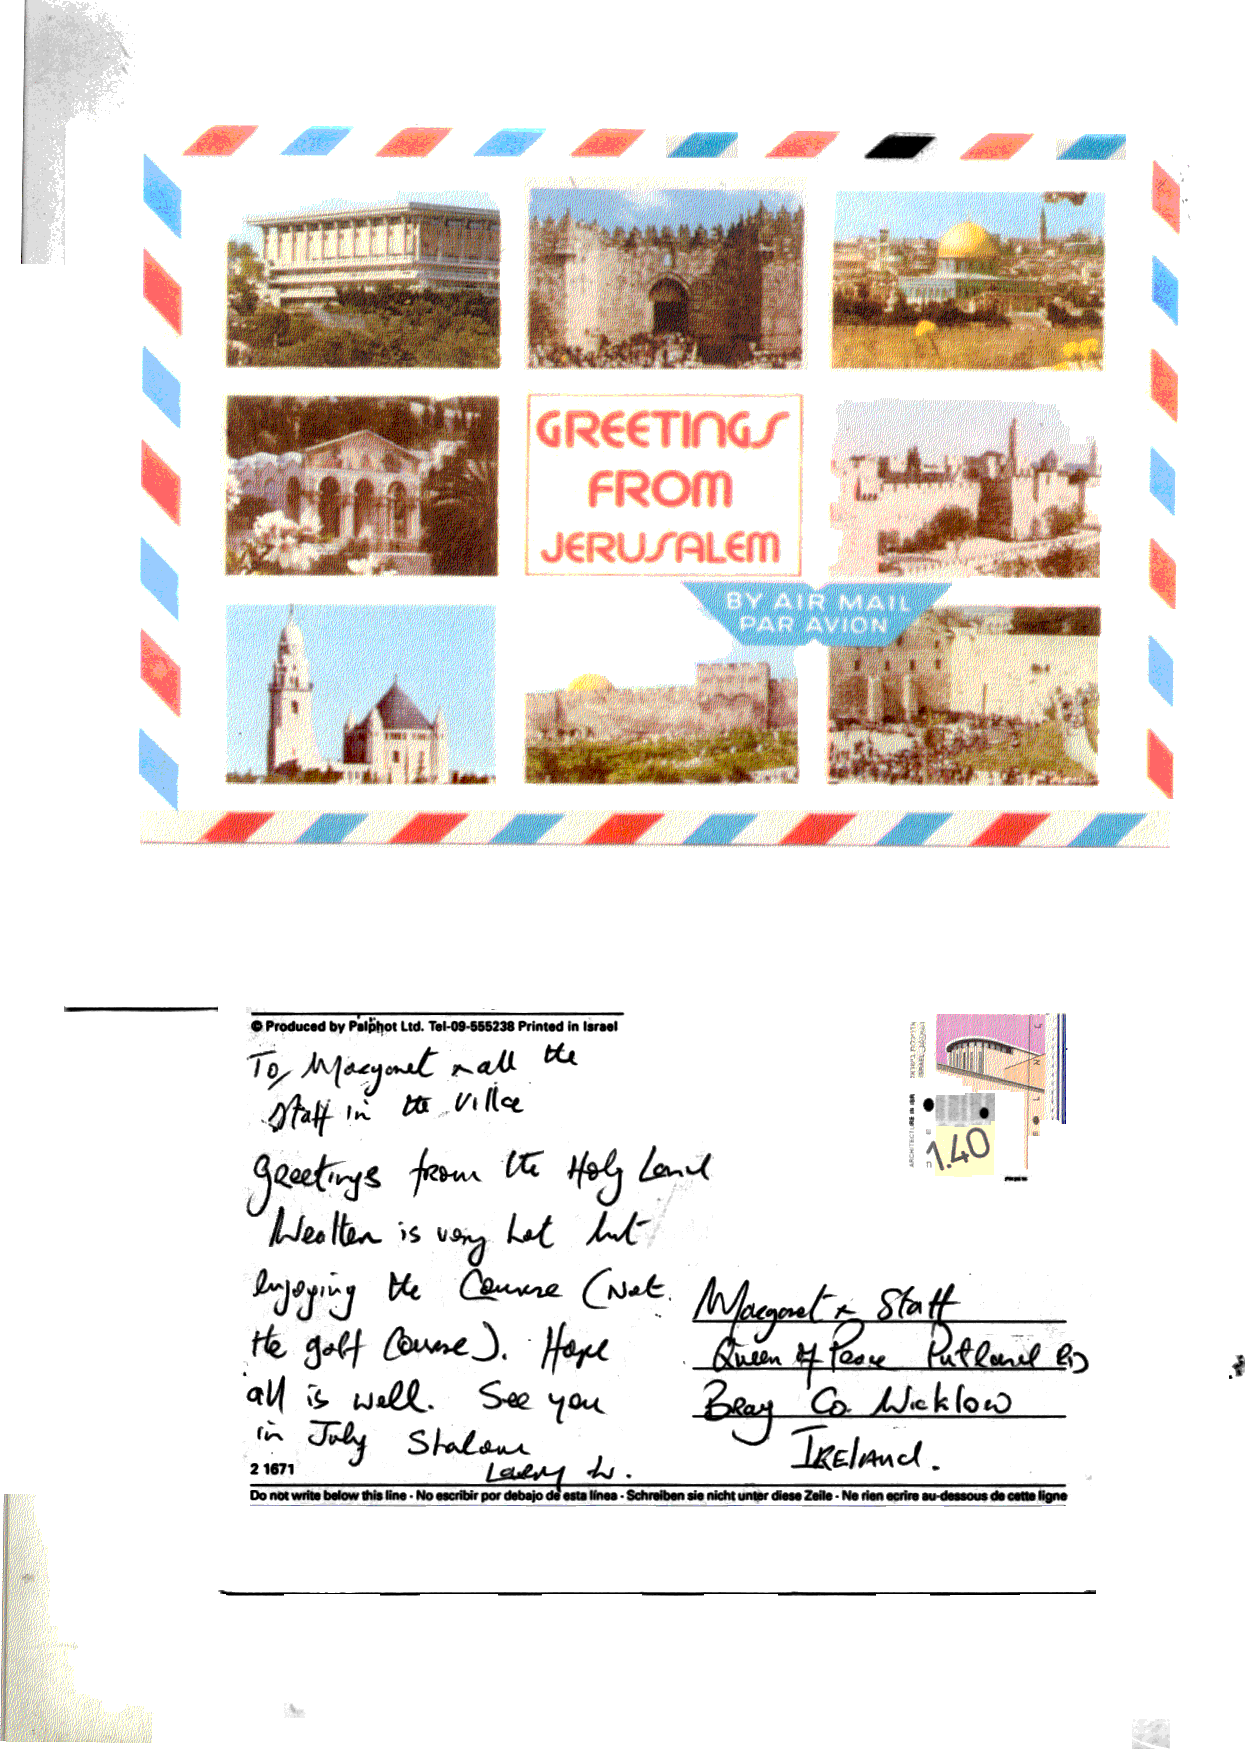 GREETINGS
FROM
JERUSALEM
BY AIR MAIL
PAR AVION
© Produced by Palphot Ltd. Tel-09-555238 Printed in Israel
To Margaret & all the
Staff in the Villa
Greetings from the Holy Land
Weather is very hot but
enjoying the Course (Not
the golf Course). Hope
all is well. See you
in July Shalom
Larry
2 1671
1.40
Margaret & Staff
Queen of Peace Putland RD
Bray Co. Wicklow
IRELAND.
Do not write below this line - No escribir por debajo de esta línea - Schreiben sie nicht unter diese Zeile - Ne rien ecrire au-dessous de cette ligne